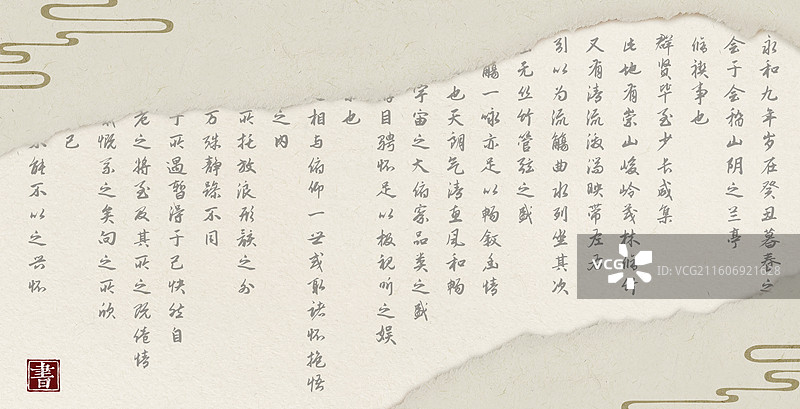 永和九年岁在癸丑暮春之
会于会稽山阴之兰亭
修禊事也
群贤毕至少长咸集
此地有崇山峻岭茂林修竹
又有清流激湍映带左右
引以为流觞曲水列坐其次
无丝竹管弦之盛
觞一咏亦足以畅叙幽情
也天朗气清惠风和畅
宇宙之大俯察品类之盛
目骋怀足以极视听之娱
也
相与俯仰一世或取诸怀抱悟
之内
所托放浪形骸之外
万殊静躁不同
于所遇暂得于己快然自
老之将至及其所之既倦情
慨系之矣向之所欣
已
能不以之兴怀
書
VCG
ID:VCG211606921628